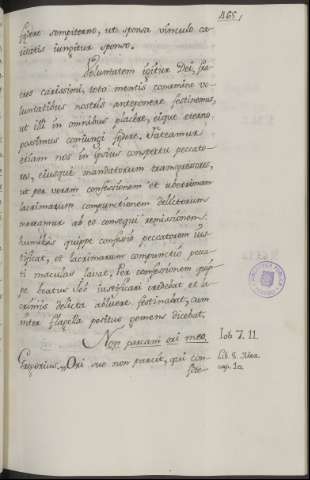 465,
fędere sempiterno, ut sponsa vinculo ca-
ritatis iungitur sponso.
Voluntatem igitur Dei, fra-
tres carissimi, toto mentis conamine vo-
luntatibus nostris anteponere festinemus,
ut illi in omnibus placere, eique eterno
possimus coniungi fędere. Fateamur
etiam nos in ipsius conspectu peccato-
res, eiusque mandatorum transgressores,
ut per veram confessionem et uberrimam
lacrimarum compunctionem delictorum
mereamur ab eo consequi remissionem.
humilis quippe confessio peccatorem ius-
tificat, et lacrimarum compunctio pecca-
ti maculas lavat. Per confessionem quip-
pe beatus Job iustificari credebat et la-
crimis delicta abluere festinabat, cum
inter flagella positus gemens dicebat,
Non parcam ori meo. Iob 7. 11
Gregorius. Ori suo non parcit, qui con-
fite-
Lib. 8. Mora.
cap. 1a